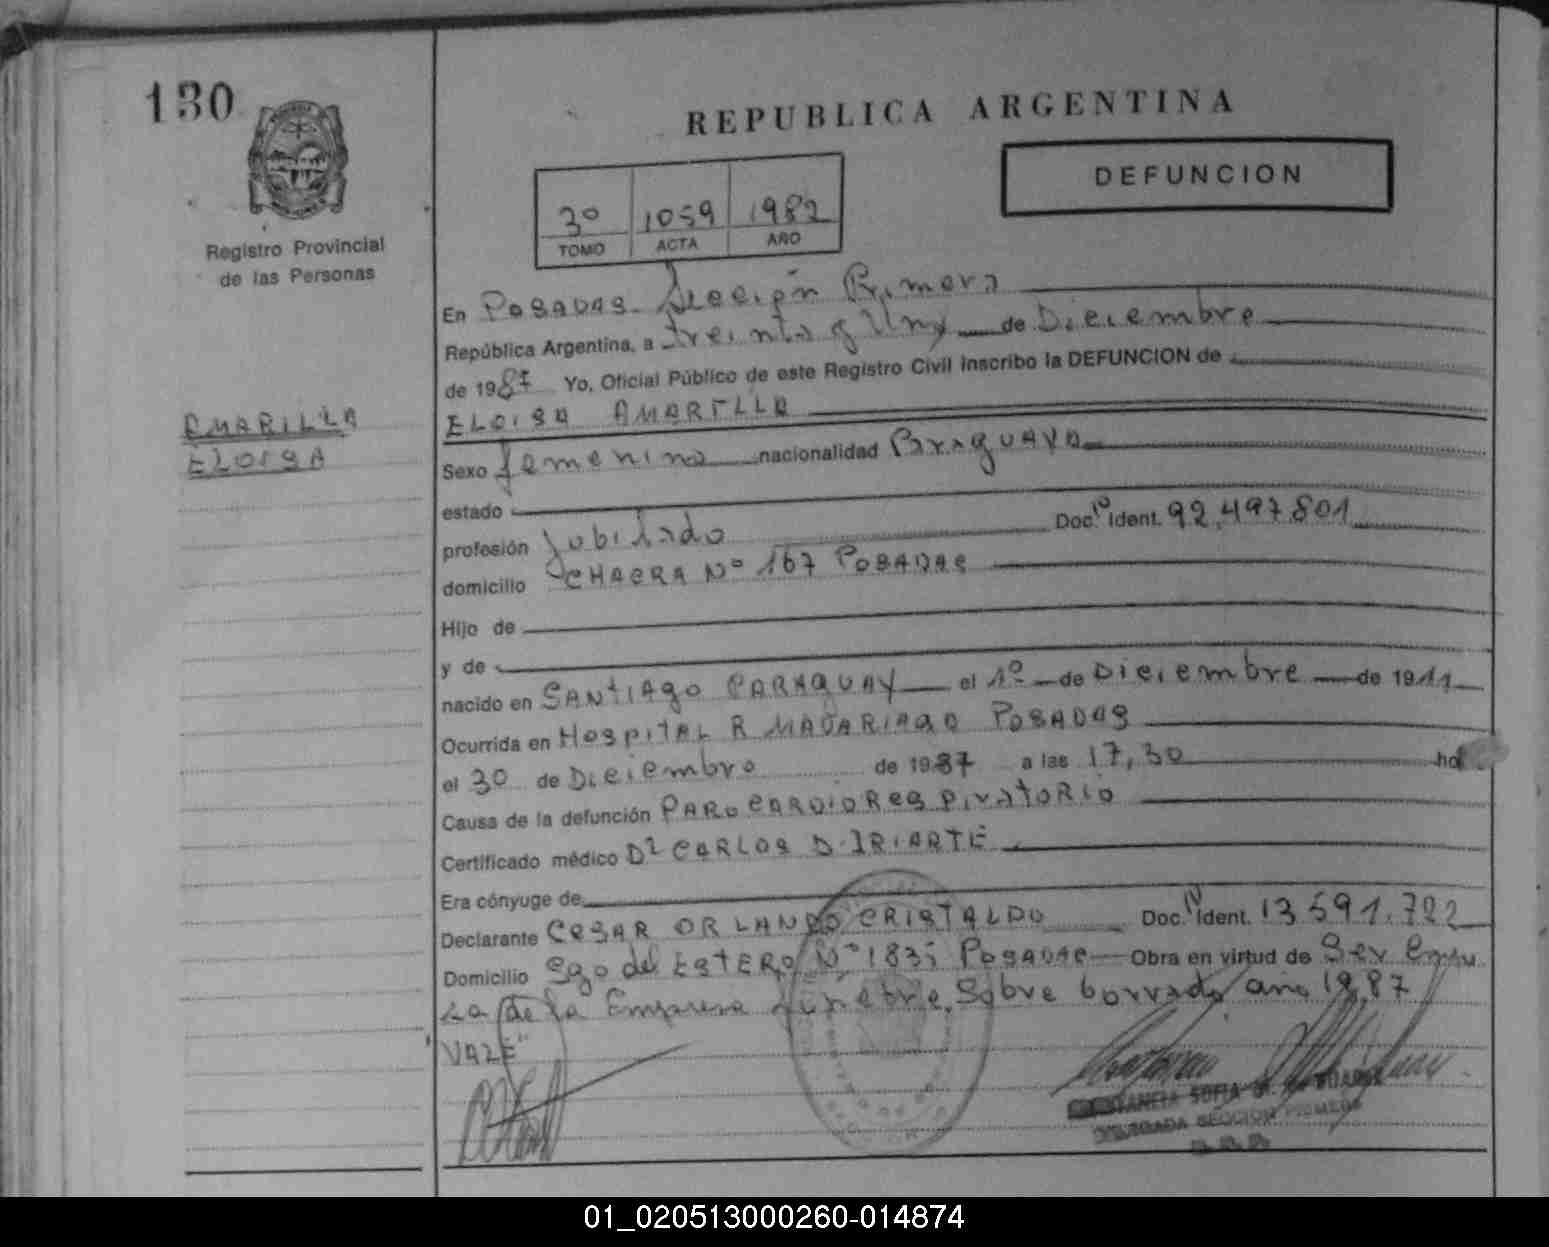 130
REPUBLICA ARGENTINA
DEFUNCION
3º 1059 1982
TOMO ACTA AÑO
Registro Provincial
de las Personas
En POSADAS Sección Primera
República Argentina, a treinta y Uno de Diciembre
de 1987 Yo, Oficial Público de este Registro Civil inscribo la DEFUNCION de
AMARILLA
ELOISA
ELOISA AMARILLA
Sexo femenino nacionalidad PARAGUAYA
estado
profesión Jubilado Doc. N Ident. 92.497.801
domicilio CHACRA Nº 167 POSADAS
Hijo de
y de
nacido en SANTIAGO PARAGUAY el 1º de Diciembre de 1911
Ocurrida en HOSPITAL R MADARIAGA POSADAS
el 30 de Diciembre de 1987 a las 17,30
Causa de la defunción PARO CARDIORESPIRATORIO
Certificado médico Dr CARLOS D. IRIARTE
Era cónyuge de
Declarante CESAR ORLANDO CRISTALDO Doc. N Ident. 13.591.722
Domicilio Sgo del ESTERO Nº 183 POSADAS Obra en virtud de Ser
de la Empresa fúnebre. Sobre borrado año 1987
VALE"
SOFIA
DELEGADA SECCION PRIMERA
01_020513000260-014874